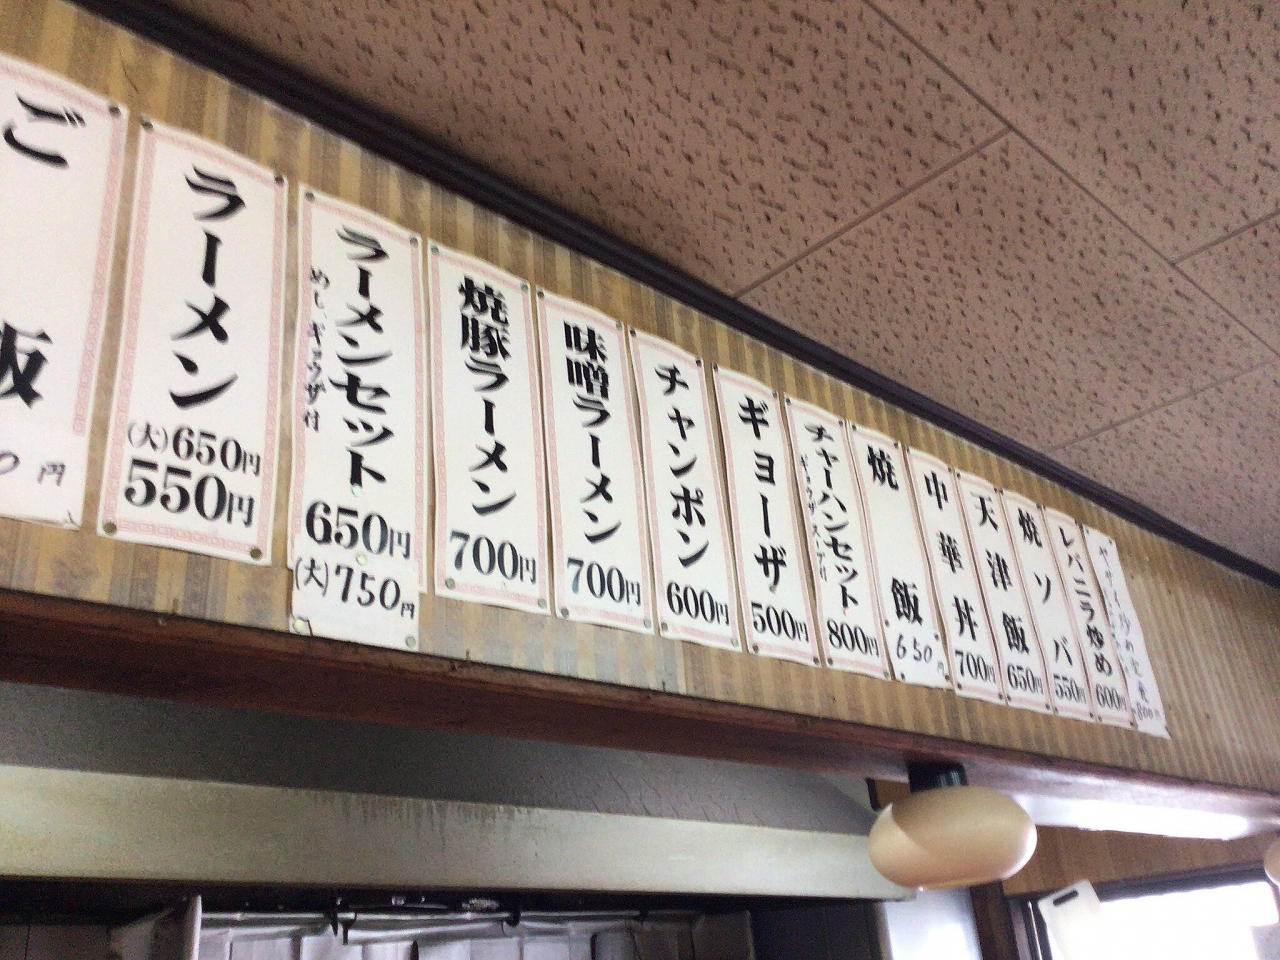 ご飯
円
ラーメン
(大)650円
550円
ラーメンセット
めし、ギョウザ付
650円
(大)750円
焼豚ラーメン
700円
味噌ラーメン
700円
チャンポン
600円
ギョーザ
500円
チャーハンセット
800円
焼飯
650円
中華丼
700円
天津飯
650円
焼ソバ
550円
レバニラ炒め
600円
800円